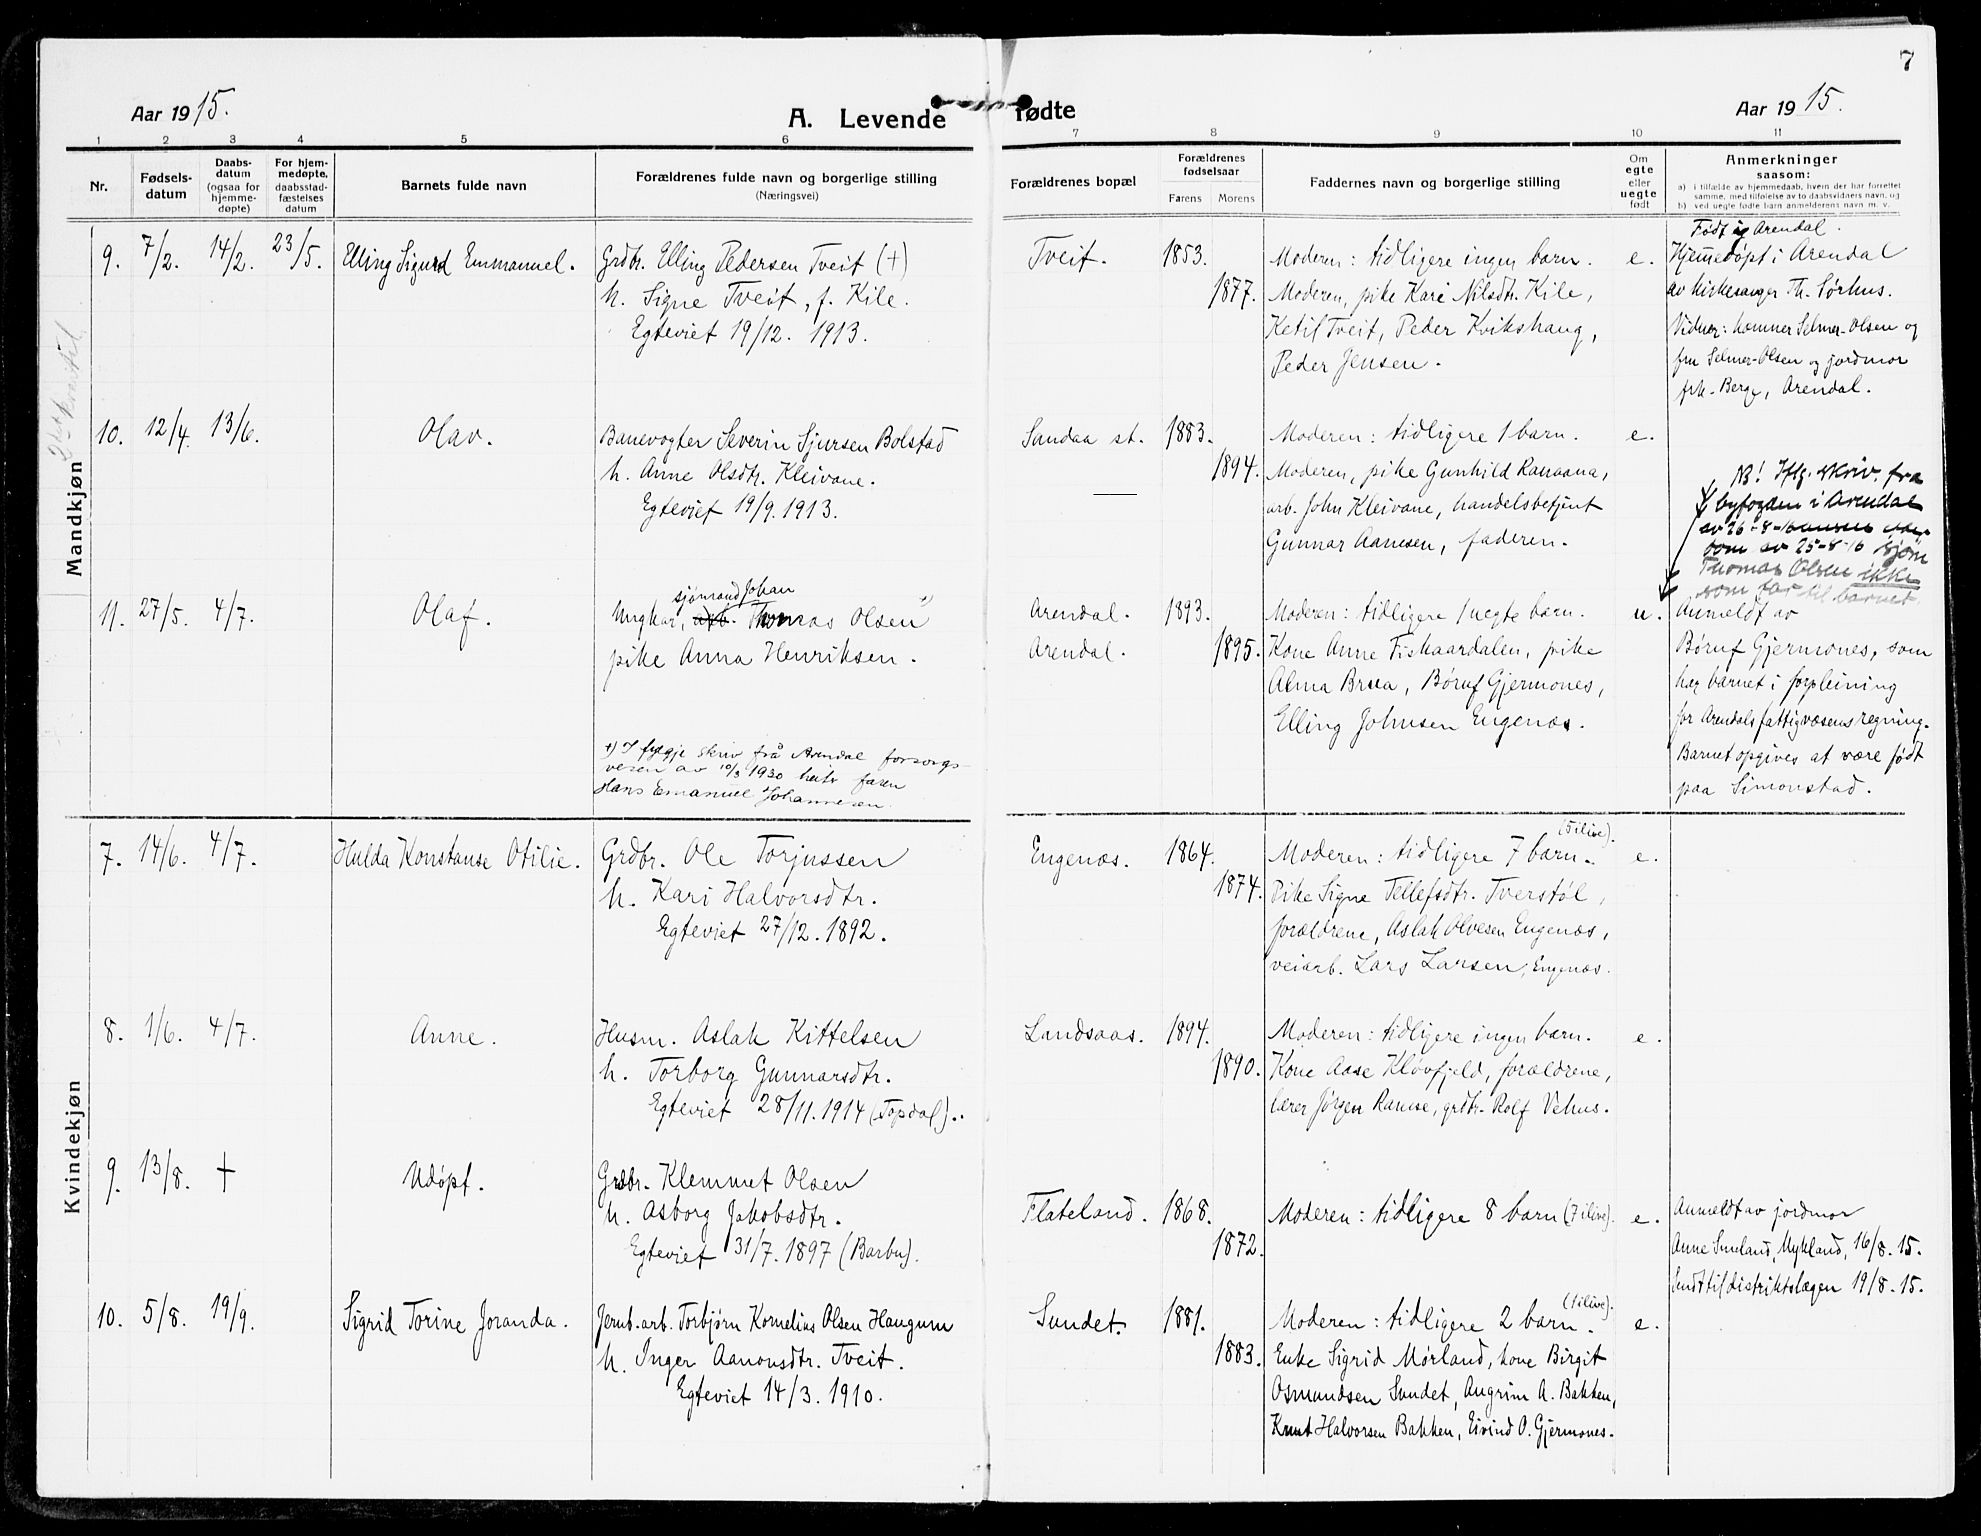 7
Aar 1915.
A. Levende fødte
Aar 1915.
1 2 3 4 5 6 7 8 9 10 11
Nr.
Fødsels-
datum
Daabs-
datum
(ogsaa for
hjemme-
døpte)
For hjem-
medøpte,
daabsstad-
fæstelses
datum
Barnets fulde navn
Forældrenes fulde navn og borgerlige stilling
(Næringsvei)
Forældrenes bopæl
Forældrenes
fødselsaar
Farens Morens
Faddernes navn og borgerlige stilling
Om
egte
eller
uegte
født
Anmerkninger
saasom:
a) i tilfælde av hjemmedaab, hvem der har forrettet
samme, med tilføielse av to daabsvidners navn, og
b) ved uegte fødte barn anmelderens navn m. v.
Mandkjøn
9. 7/2. 14/2. 23/5. Elling Sigurd Emmanuel.
Grdbr. Elling Pedersen Tveit (+)
h. Signe Tveit, f. Kile.
Egteviet 19/12. 1913.
Tveit. 1853.
1877.
Moderen: tidligere ingen barn.
Moderen, pike Kari Nilsdtr. Kile,
Ketil Tveit, Peder Kvikshaug,
Peder Jensen.
e.
Født i Arendal.
Hjemmedøpt i Arendal
av kirkesanger Th. Sørhus.
Vidner: kemner Selmer-Olsen og
fru Selmer-Olsen og jordmor
frk. Berge, Arendal.
10. 12/4. 13/6. Olav.
Banevogter Severin Sjursen Bolstad
h. Anne Olsdtr. Kleivane.
Egteviet 19/9. 1913.
Sandaa st. 1883.
1894.
Moderen: tidligere 1 barn.
Moderen, pike Gunhild Ramaana,
arb. John Kleivane, handelsbetjent
Gunnar Aanesen, faderen.
e.
NB! Iflg. skriv. fra
byfogden i Arendal
av 26-8-
dom av 25-8-16
Thomas Olsen ikke
som far til barnet
11. 27/5. 4/7. Olaf.
sjømand Johan
Ungkar, arb. Thomas Olsen +)
pike Anna Henriksen.
Arendal. 1893.
Arendal. 1895.
Moderen: tidligere 1 uegte barn.
Kone Anne Fiskaardalen, pike
Alma Breea, Børuf Gjermones,
Elling Johnsen Engenæs.
u.
Anmeldt av
Børuf Gjermones, som
har barnet i forpleining
for Arendals fattigvæsens regning.
Barnet opgives at være født
paa Simonstad.
+) I fylgje skriv frå Arendal forsorgs-
vesen av 10/3 1930 heiter faren
Hans Emanuel Johannesen.
Kvindekjøn
7. 14/6. 4/7. Hulda Konstanse Otilie.
Grdbr. Ole Torjussen
h. Kari Halvorsdtr.
Egteviet 27/12. 1892.
Engenæs. 1864.
1874.
(5 ilive).
Moderen: tidligere 7 barn.
Pike Signe Tellefsdtr. Tverstøl,
forældrene, Aslak Olvesen Engenæs,
veiarb. Lars Larsen, Engenæs.
e.
8. 1/6. 4/7. Anne.
Husm. Aslak Kittelsen
h. Torborg Gunnarsdtr.
Egteviet 28/11. 1914 (Topdal).
Landsaas. 1894.
1890.
Moderen: tidligere ingen barn.
Kone Aase Kløvfjeld, forældrene,
lærer Jørgen Ramse, grdbr. Rolf Vehus.
e.
9. 13/8. + Udøpt.
Grdbr. Klemmet Olsen
h. Asborg Jakobsdtr.
Egteviet 31/7. 1897 (Barbu).
Flateland. 1868.
1872.
Moderen: tidligere 8 barn (7 ilive).
e.
Anmeldt av jordmor
Anne Smeland, Mykland, 16/8. 15.
Sendt til distriktslægen 19/8. 15.
10. 5/8. 19/9. Sigrid Torine Joranda.
Jernb. arb. Torbjørn Kornelius Olsen Haugum
h. Inger Aanonsdtr. Tveit.
Egteviet 14/3. 1910.
Sundet. 1881.
1883.
(1 ilive).
Moderen: tidligere 2 barn.
Enke Sigrid Mørland, kone Birgit
Osmundsen Sundet, Angrim A. Bakken,
Knut Halvorsen Bakken, Eivind O. Gjermones.
e.